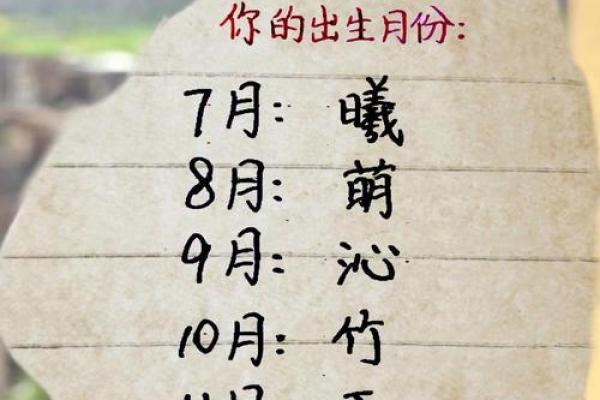 你的出生月份:
7月: 曦
8月: 萌
9月: 沁
10月: 竹